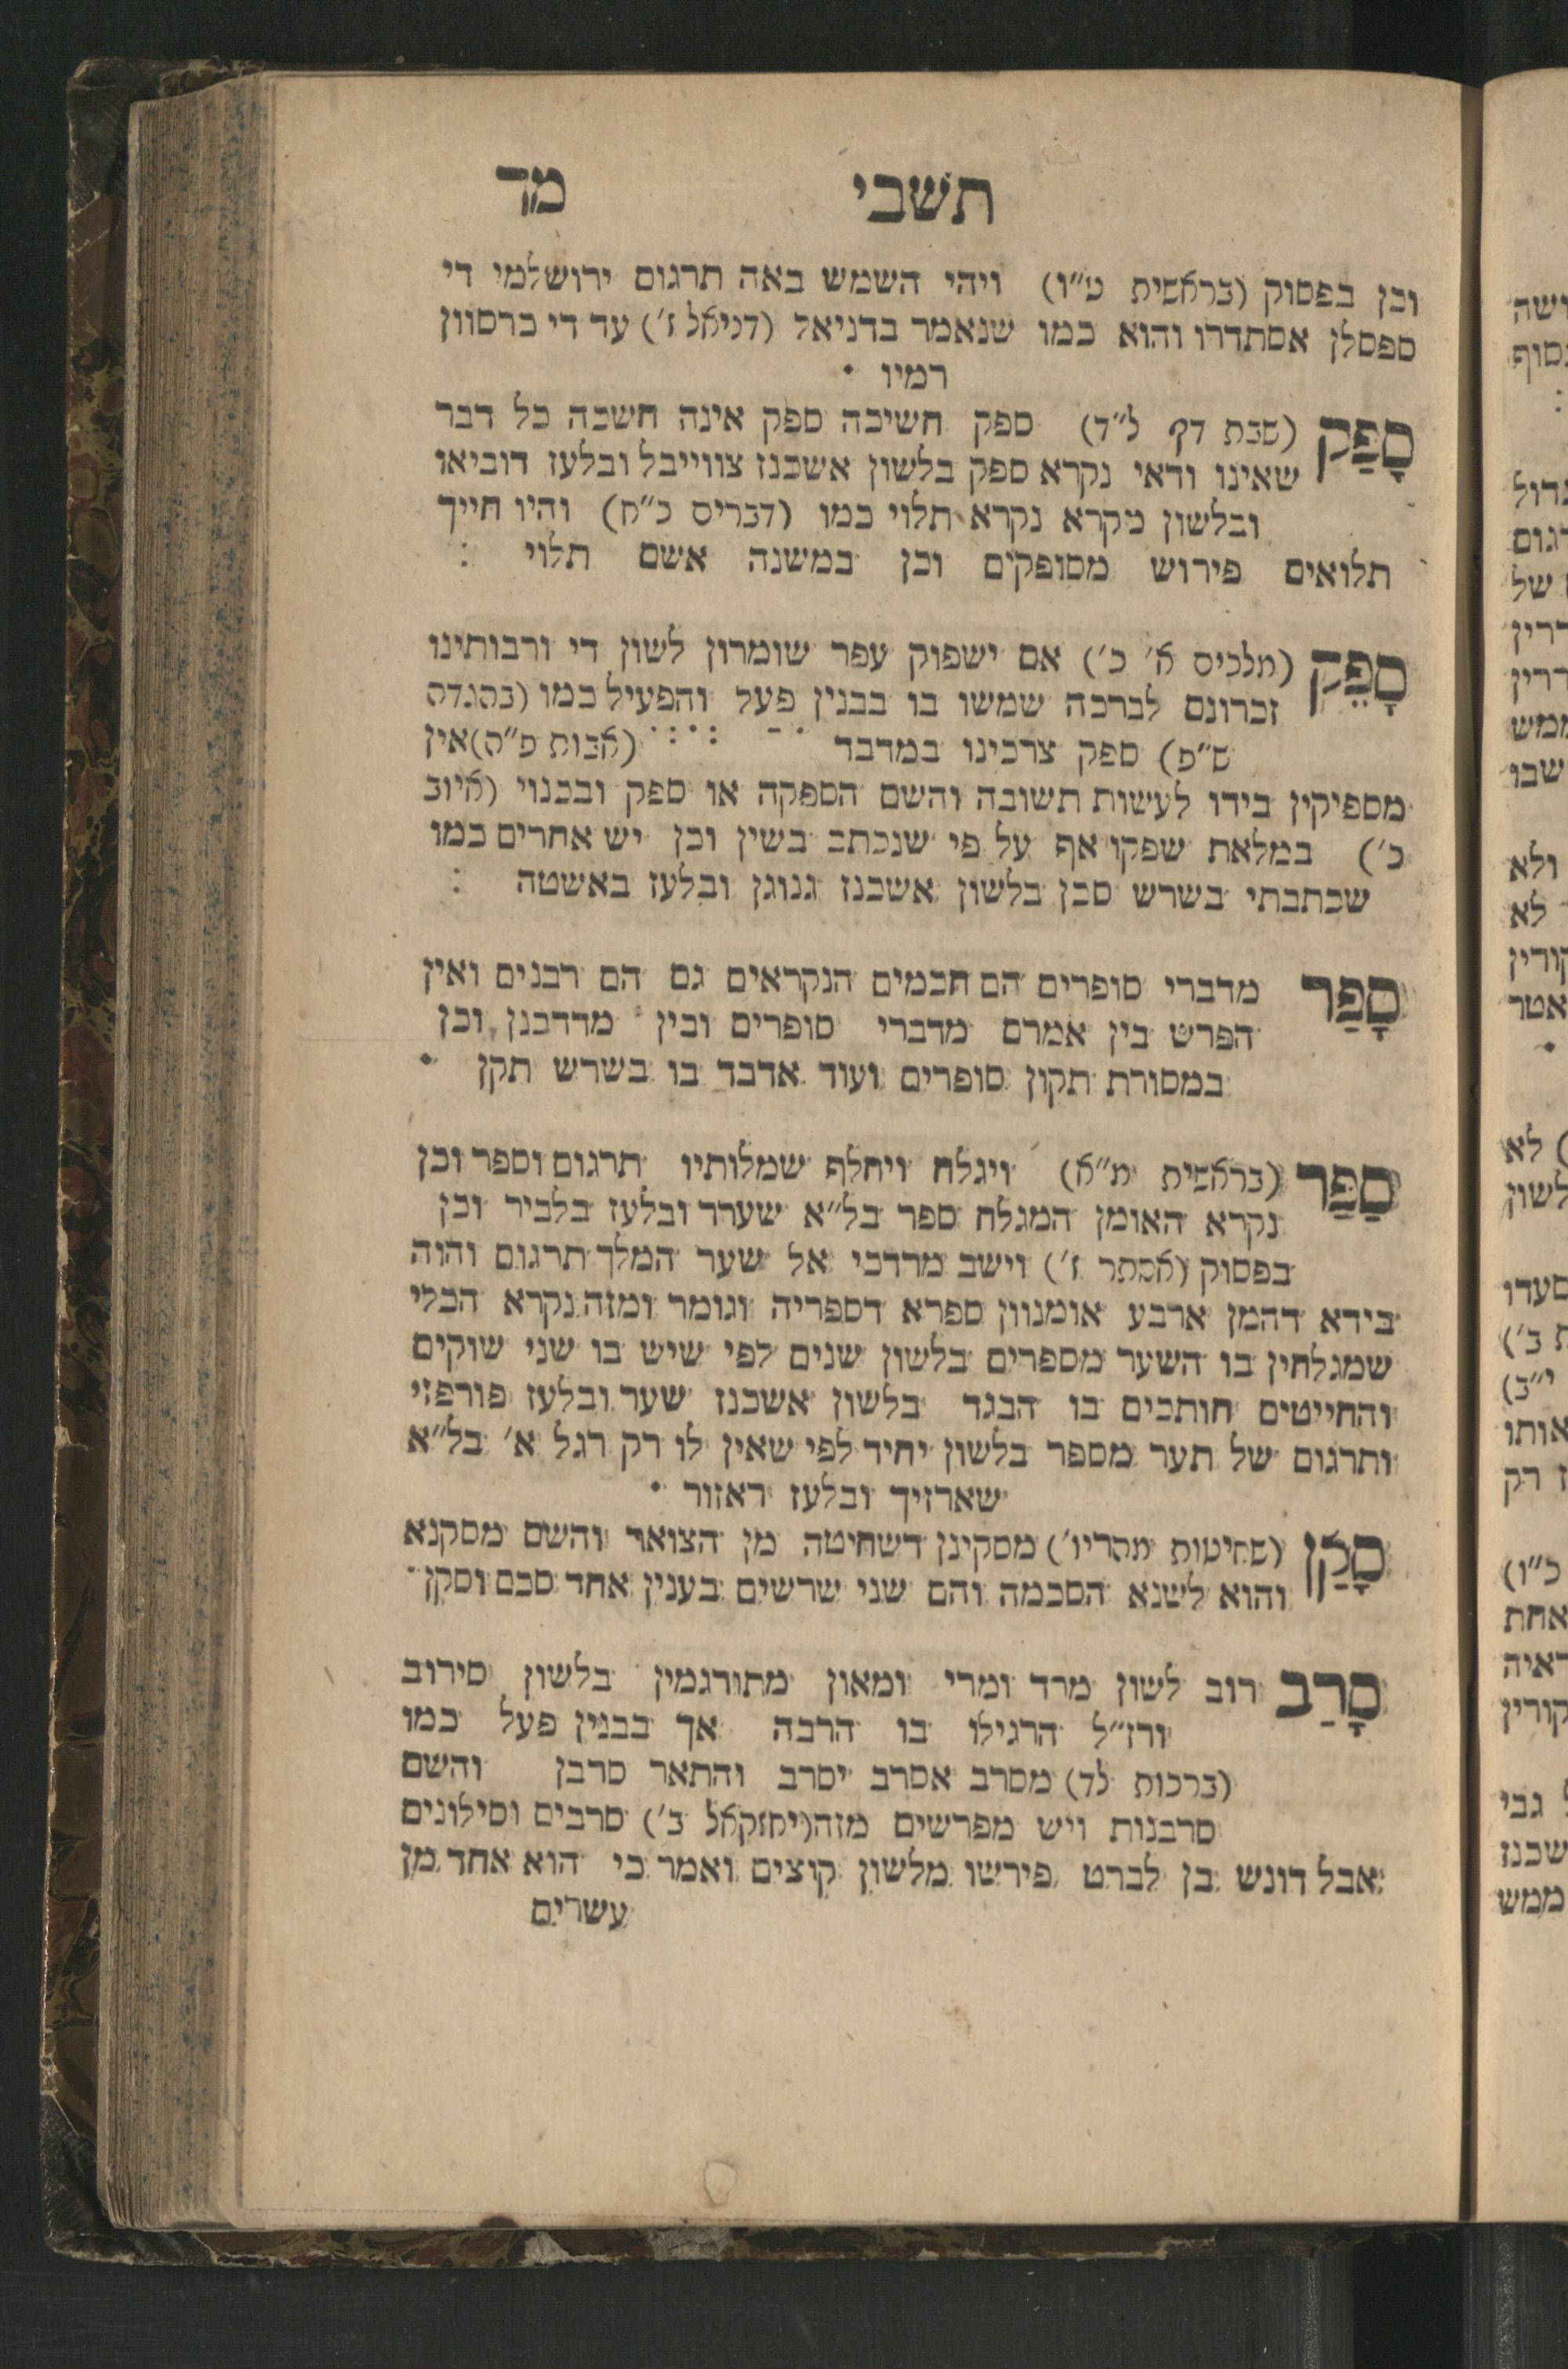 תשבי מד
וכן בפסוק (בראשית ט״ו) ויהי השמש באה תרגום ירושלמי די
ספסלן אסתדרו והוא כמו שנאמר בדניאל (דניאל ז׳) עד די כרסוון
רמיו •
סָפַק (שבת דף ל״ד) ספק חשיכה ספק אינה חשכה כל דבר
שאינו ודאי נקרא ספק בלשון אשכנז צווייבל ובלעז דוביאו
ובלשון מקרא נקרא תלוי כמו (דברים כ״ח) והיו חייך
תלואים פירוש מסופקים וכן במשנה אשם תלוי :
סָפֵק (מלכים א׳ כ׳) אם ישפוק עפר שומרון לשון די ורבותינו
זכרונם לברכה שמשו בו בבנין פעל והפעיל כמו (בהגדה
ש״פ) ספק צרכינו במדבר (אבות פ״ה) אין
מספיקין בידו לעשות תשובה והשם הספקה או ספק ובכנוי (איוב
כ׳) במלאת שפקו אף על פי שנכתב בשין וכן יש אחרים כמו
שכתבתי בשרש סכן בלשון אשכנז גנוגן ובלעז באשטה :
סָפַר מדברי סופרים הם חכמים הנקראים גם הם רבנים ואין
הפרש בין אמרם מדברי סופרים ובין מדרבנן וכן
במסורת תקון סופרים ועוד אדבר בו בשרש תקן •
סַפַּר (בראשית מ״א) ויגלח ויחלף שמלותיו תרגום וספר וכן
נקרא האומן המגלח ספר בל״א שערר ובלעז בלביר וכן
בפסוק (אסתר ז׳) וישב מרדכי אל שער המלך תרגום והוה
בידא דהמן ארבע אומנוון ספרא דספריה וגומר ומזה נקרא הכלי
שמגלחין בו השער מספרים בלשון שנים לפי שיש בו שני שוקים
והחייטים חותכים בו הבגד בלשון אשכנז שער ובלעז פורפזי
ותרגום של תער מספר בלשון יחיד לפי שאין לו רק רגל א׳ בל״א
שארזיך ובלעז ראזור •
סָקַן (שחיטות מהריו׳) מסקינן דשחיטה מן הצואר והשם מסקנא
והוא לשנא הסכמה והם שני שרשים בענין אחד סכם וסקן
סָרַב רוב לשון מרד ומרי ומאון מתורגמין בלשון סירוב
ורז״ל הרגילו בו הרבה אך בבנין פעל כמו
(ברכות לד) מסרב אסרב יסרב והתאר סרבן והשם
סרבנות ויש מפרשים מזה (יחזקאל ב׳) סרבים וסילונים
אבל דונש בן לברט פירשו מלשון קוצים ואמר כי הוא אחד מן
עשרים